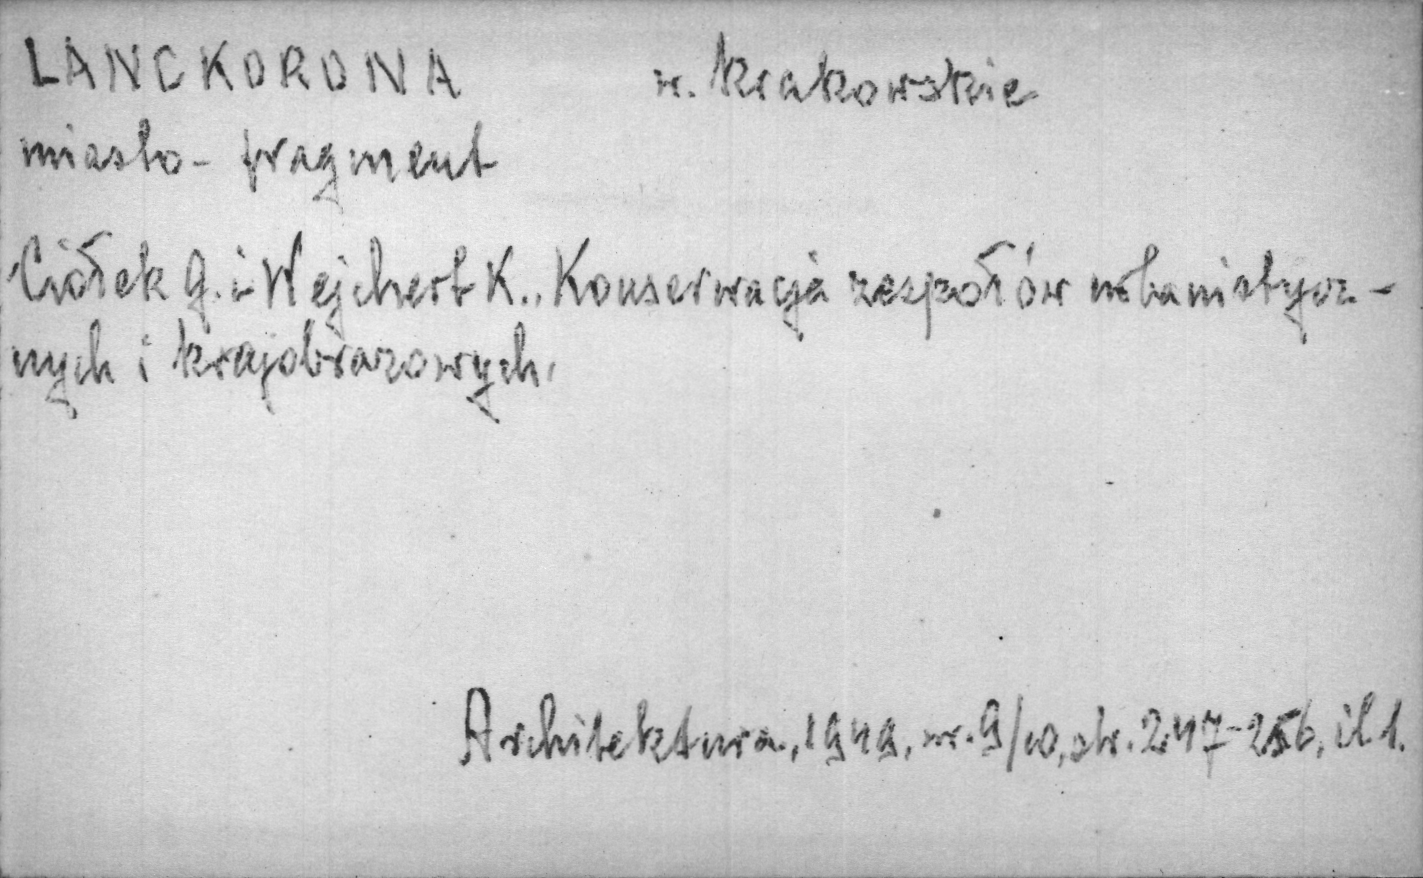 LANCKORONA w. krakowskie
miasto - fragment
Ciołek G. i Wejchert K., Konserwacja zespołów urbanistycz-
nych i krajobrazowych.
Architektura, 1949, nr. 9/10, str. 247-256, il 1.